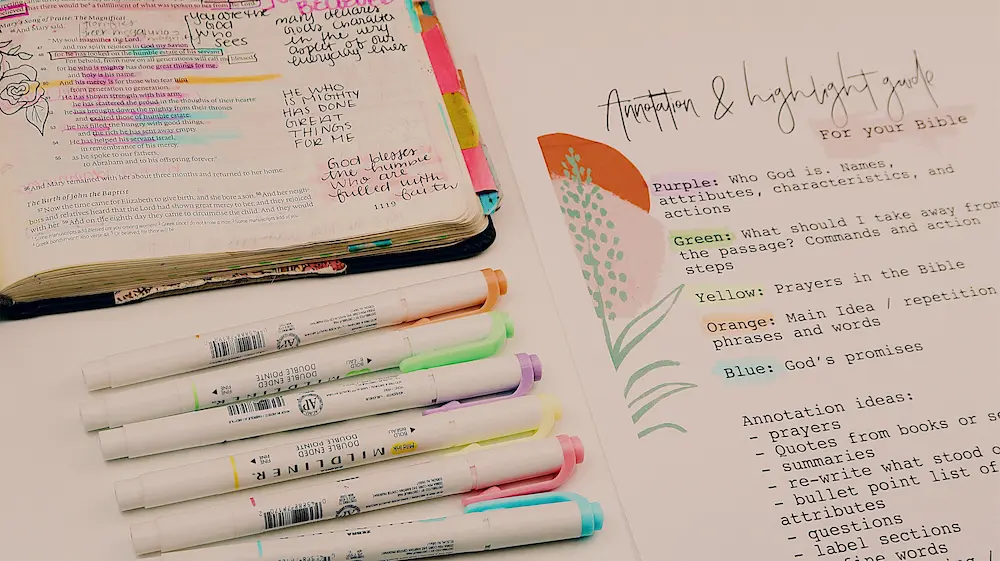 Mary's Song of Praise: The Magnificat
And Mary said,
"My soul magnifies the Lord,
and my spirit rejoices in God my Savior,
for he has looked on the humble estate of his servant.
For behold, from now on all generations will call me blessed;
for he who is mighty has done great things for me,
and holy is his name.
And his mercy is for those who fear him
from generation to generation.
He has shown strength with his arm;
he has scattered the proud in the thoughts of their hearts;
he has brought down the mighty from their thrones
and exalted those of humble estate;
he has filled the hungry with good things,
and the rich he has sent away empty.
He has helped his servant Israel,
in remembrance of his mercy,
as he spoke to our fathers,
to Abraham and to his offspring forever."
And Mary remained with her about three months and returned to her home.
The Birth of John the Baptist
Now the time came for Elizabeth to give birth, and she bore a son. And her neigh-
bors and relatives heard that the Lord had shown great mercy to her, and they rejoiced
with her. And on the eighth day they came to circumcise the child. And they would
you are the
God
who
sees
many declares
God's character
in the way
everyday lives
HE WHO
IS MIGHTY
HAS DONE
GREAT
THINGS
FOR ME
God blesses
the humble
who are
filled with
faith
1119
DOUBLE ENDED
DOUBLE POINTE
MILDLINER
DOUBLE ENDED
DOUBLE POINTE
FINE
BOLD
ZEBRA
Annotation & highlight guide
For your Bible
Purple: Who God is. Names,
attributes, characteristics, and
actions
Green: What should I take away from
the passage? Commands and action
steps
Yellow: Prayers in the Bible
Orange: Main Idea / repetition
phrases and words
Blue: God's promises
Annotation ideas:
- prayers
- Quotes from books or
- summaries
- re-write what stood
- bullet point list of
attributes
- questions
- label sections
words